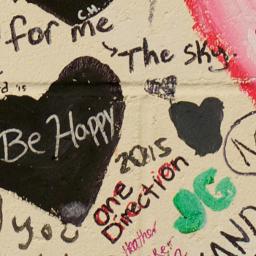 C.H.
for me
The sky.
is
Be Happy
2015
one
Direction
JG
you
Heather
AND